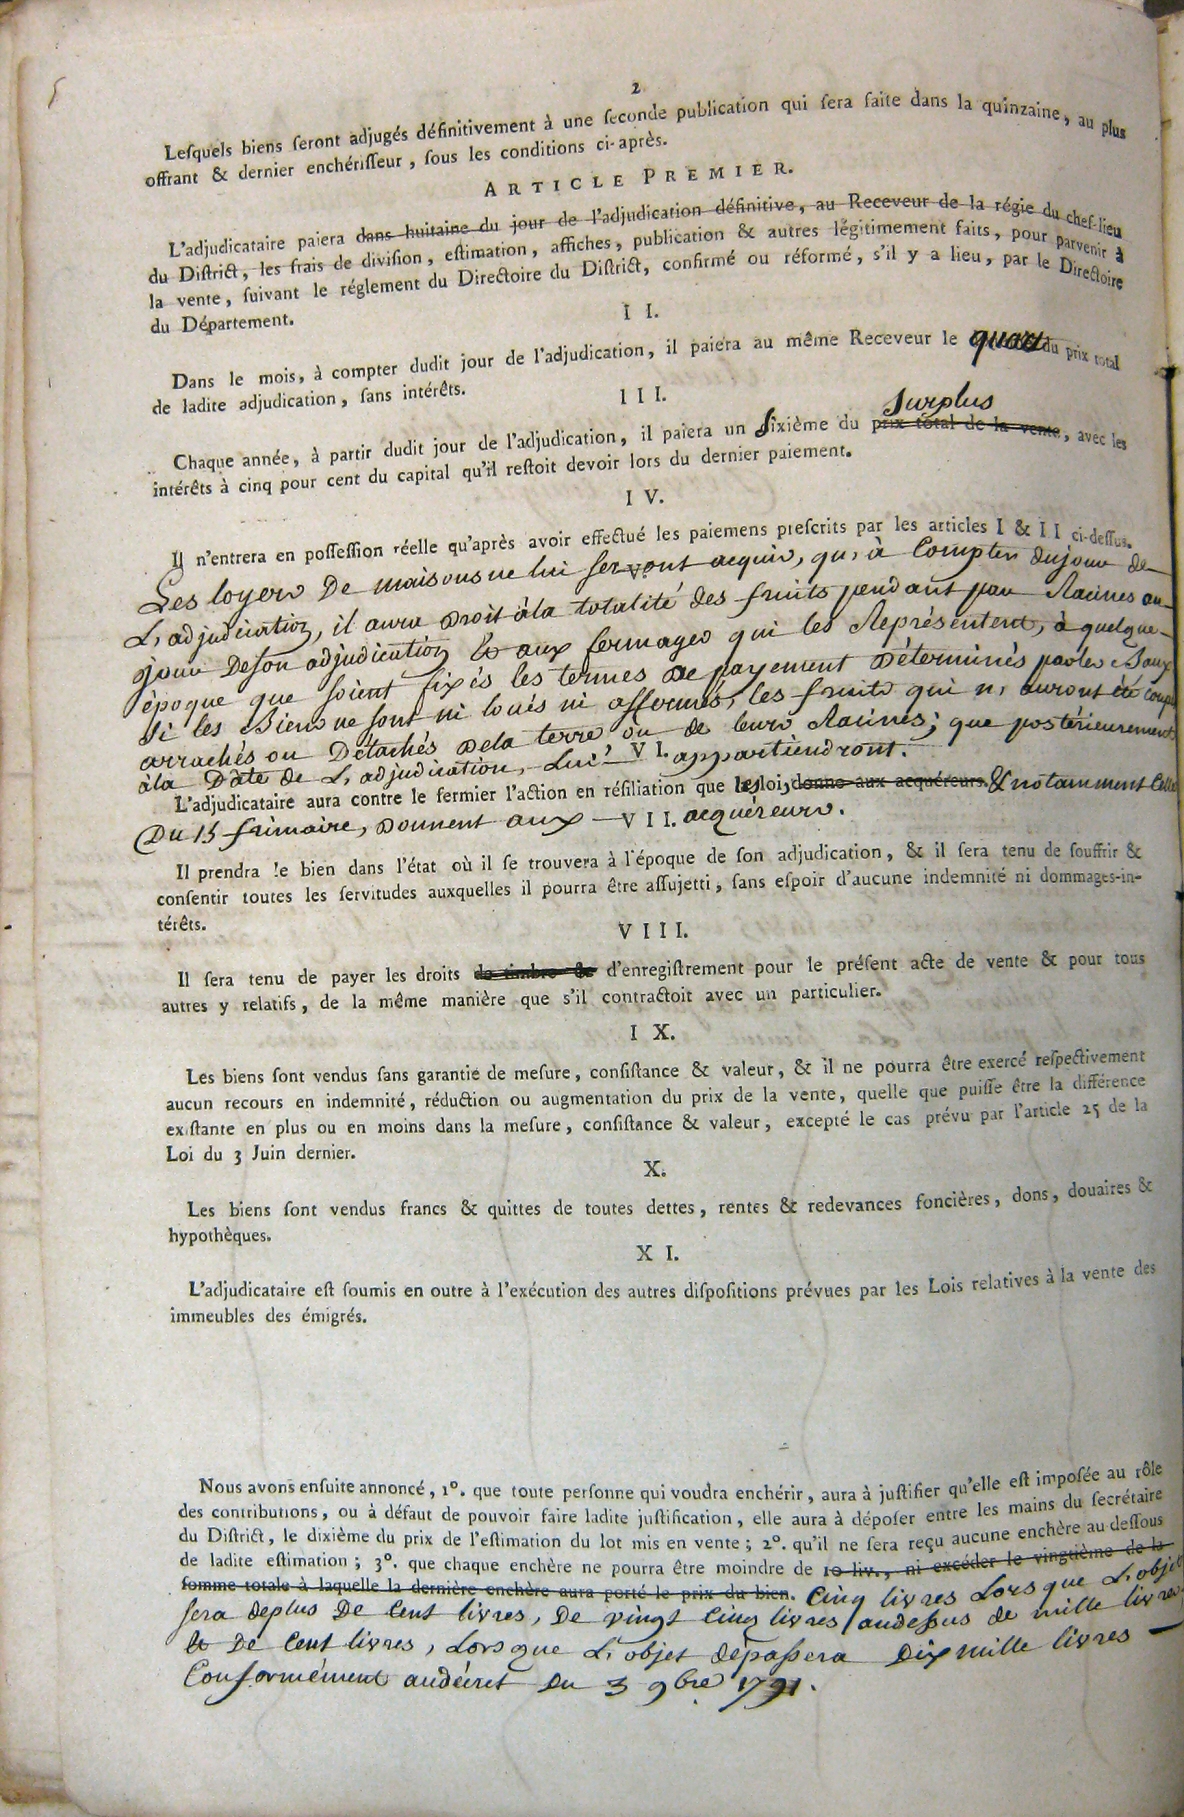 2
Lesquels biens seront adjugés définitivement à une seconde publication qui sera faite dans la quinzaine, au plus
offrant & dernier enchérisseur, sous les conditions ci-après.
ARTICLE PREMIER.
L'adjudicataire paiera dans huitaine du jour de l'adjudication définitive, au Receveur de la régie du chef-lieu
du District, les frais de division, estimation, affiches, publication & autres légitimement faits, pour parvenir à
la vente, suivant le réglement du Directoire du District, confirmé ou réformé, s'il y a lieu, par le Directoire
du Département.
II.
Dans le mois, à compter dudit jour de l'adjudication, il paiera au même Receveur le quart du prix total
de ladite adjudication, sans intérêts.
III.
surplus
Chaque année, à partir dudit jour de l'adjudication, il paiera un sixième du prix total de la vente, avec les
intérêts à cinq pour cent du capital qu'il restoit devoir lors du dernier paiement.
IV.
Il n'entrera en possession réelle qu'après avoir effectué les paiemens prescrits par les articles I & II ci-dessus.
V.
Les loyers De maisons ne lui seront acquis, qu'à Compter du jour de
L'adjudication, il aura Droit à la totalité des fruits pendant par Racines au
jour De son adjudication et aux fermages qui les Représentent, à quelque
époque que soient fixés les termes De payement Déterminés par les Baux
si les Biens ne sont ni loués ni affermés, les fruits qui n'auront été coupés
arrachés ou Détachés De la terre ou de leurs Racines, que postérieurement
à la Date de L'adjudication, Lui appartiendront.
VI.
L'adjudicataire aura contre le fermier l'action en résiliation que les loi, donne aux acquéreurs. & notamment Celle
Du 15 frimaire, Donnent aux acquéreurs.
VII.
Il prendra le bien dans l'état où il se trouvera à l'époque de son adjudication, & il sera tenu de souffrir &
consentir toutes les servitudes auxquelles il pourra être assujetti, sans espoir d'aucune indemnité ni dommages-in-
térêts.
VIII.
Il sera tenu de payer les droits de timbre & d'enregistrement pour le présent acte de vente & pour tous
autres y relatifs, de la même manière que s'il contractoit avec un particulier.
IX.
Les biens sont vendus sans garantie de mesure, consistance & valeur, & il ne pourra être exercé respectivement
aucun recours en indemnité, réduction ou augmentation du prix de la vente, quelle que puisse être la différence
existante en plus ou en moins dans la mesure, consistance & valeur, excepté le cas prévu par l'article 25 de la
Loi du 3 Juin dernier.
X.
Les biens sont vendus francs & quittes de toutes dettes, rentes & redevances foncières, dons, douaires &
hypothèques.
XI.
L'adjudicataire est soumis en outre à l'exécution des autres dispositions prévues par les Lois relatives à la vente des
immeubles des émigrés.
Nous avons ensuite annoncé, 1°. que toute personne qui voudra enchérir, aura à justifier qu'elle est imposée au rôle
des contributions, ou à défaut de pouvoir faire ladite justification, elle aura à déposer entre les mains du secrétaire
du District, le dixième du prix de l'estimation du lot mis en vente; 2°. qu'il ne sera reçu aucune enchère au dessous
de ladite estimation; 3°. que chaque enchère ne pourra être moindre de 10 liv., ni excéder le vingtième de la
somme totale à laquelle la dernière enchère aura porté le prix du bien. Cinq livres Lorsque L'objet
sera deplus De Cent livres, De vingt Cinq livres audessus de mille livres
et De Cent livres, Lorsque L'objet dépassera Dix mille livres
Conformément audécret Du 3 9bre 1791.